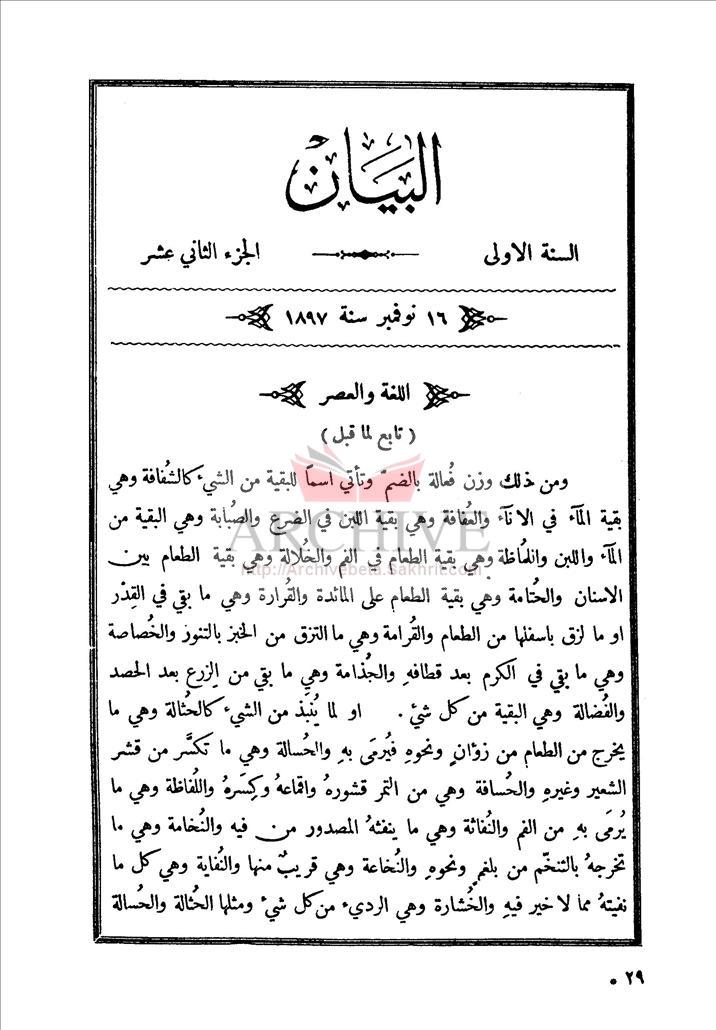 البيان
السنة الاولى الجزء الثاني عشر
١٦ نوفمبر سنة ١٨٩٧
اللغة والعصر
( تابع لما قبل )
ومن ذلك وزن فُعالة بالضمّ وتأتي اسماً للبقية من الشيء كالشُفافة وهي
بقية المآء في الانآء والعُفافة وهي بقية اللبن في الضرع والصُبابة وهي البقية من
المآء واللبن واللُماظة وهي بقية الطعام في الفم والخُلالة وهي بقية الطعام بين
الاسنان والحُتامة وهي بقية الطعام على المائدة والقُرارة وهي ما بقي في القِدْر
او ما لزق باسفلها من الطعام والقُرامة وهي ما التزق من الخبز بالتنور والخُصاصة
وهي ما بقي في الكرم بعد قطافهِ والجُذامة وهي ما بقي من الزرع بعد الحصد
والفُضالة وهي البقية من كل شيء . او لما يُنبَذ من الشيء كالحُثالة وهي ما
يخرج من الطعام من زؤانٍ ونحوهِ فيُرمَى بهِ والحُسالة وهي ما تكسَّر من قشر
الشعير وغيرهِ والحُسافة وهي من التمر قشورهُ واقماعهُ وكِسَرهُ واللُفاظة وهي ما
يُرمَى بهِ من الفم والنُفاثة وهي ما ينفثهُ المصدور من فيه والنُخامة وهي ما
تخرجهُ بالتنخّم من بلغمٍ ونحوهِ والنُخاعة وهي قريبٌ منها والنُفاية وهي كل ما
نفيتهُ مما لا خير فيهِ والخُشارة وهي الرديء من كل شيء ومثلها الحُثالة والحُسالة
٢٩ •
ARCHIVE
http://Archivebeta.Sakhrit.com